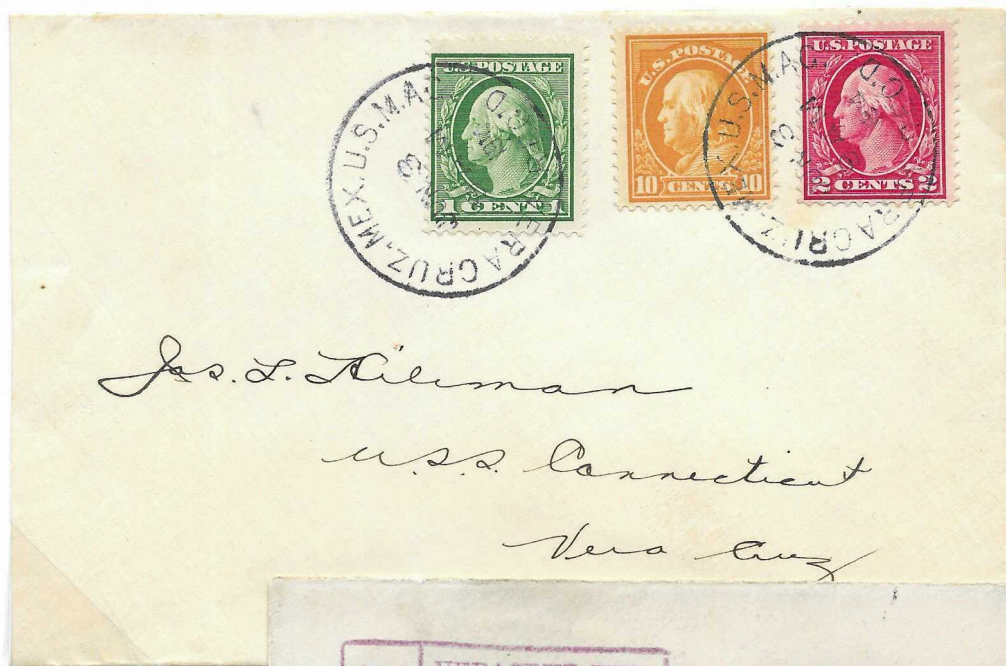 U.S. POSTAGE
1 CENT 1
U.S. POSTAGE
10 CENTS 10
U.S. POSTAGE
2 CENTS 2
VERACRUZ. MEX. U.S.M.AG.
VERACRUZ. MEX. U.S.M.AG.
Jas. L. Hileman
U.S.S. Connecticut
Vera Cruz